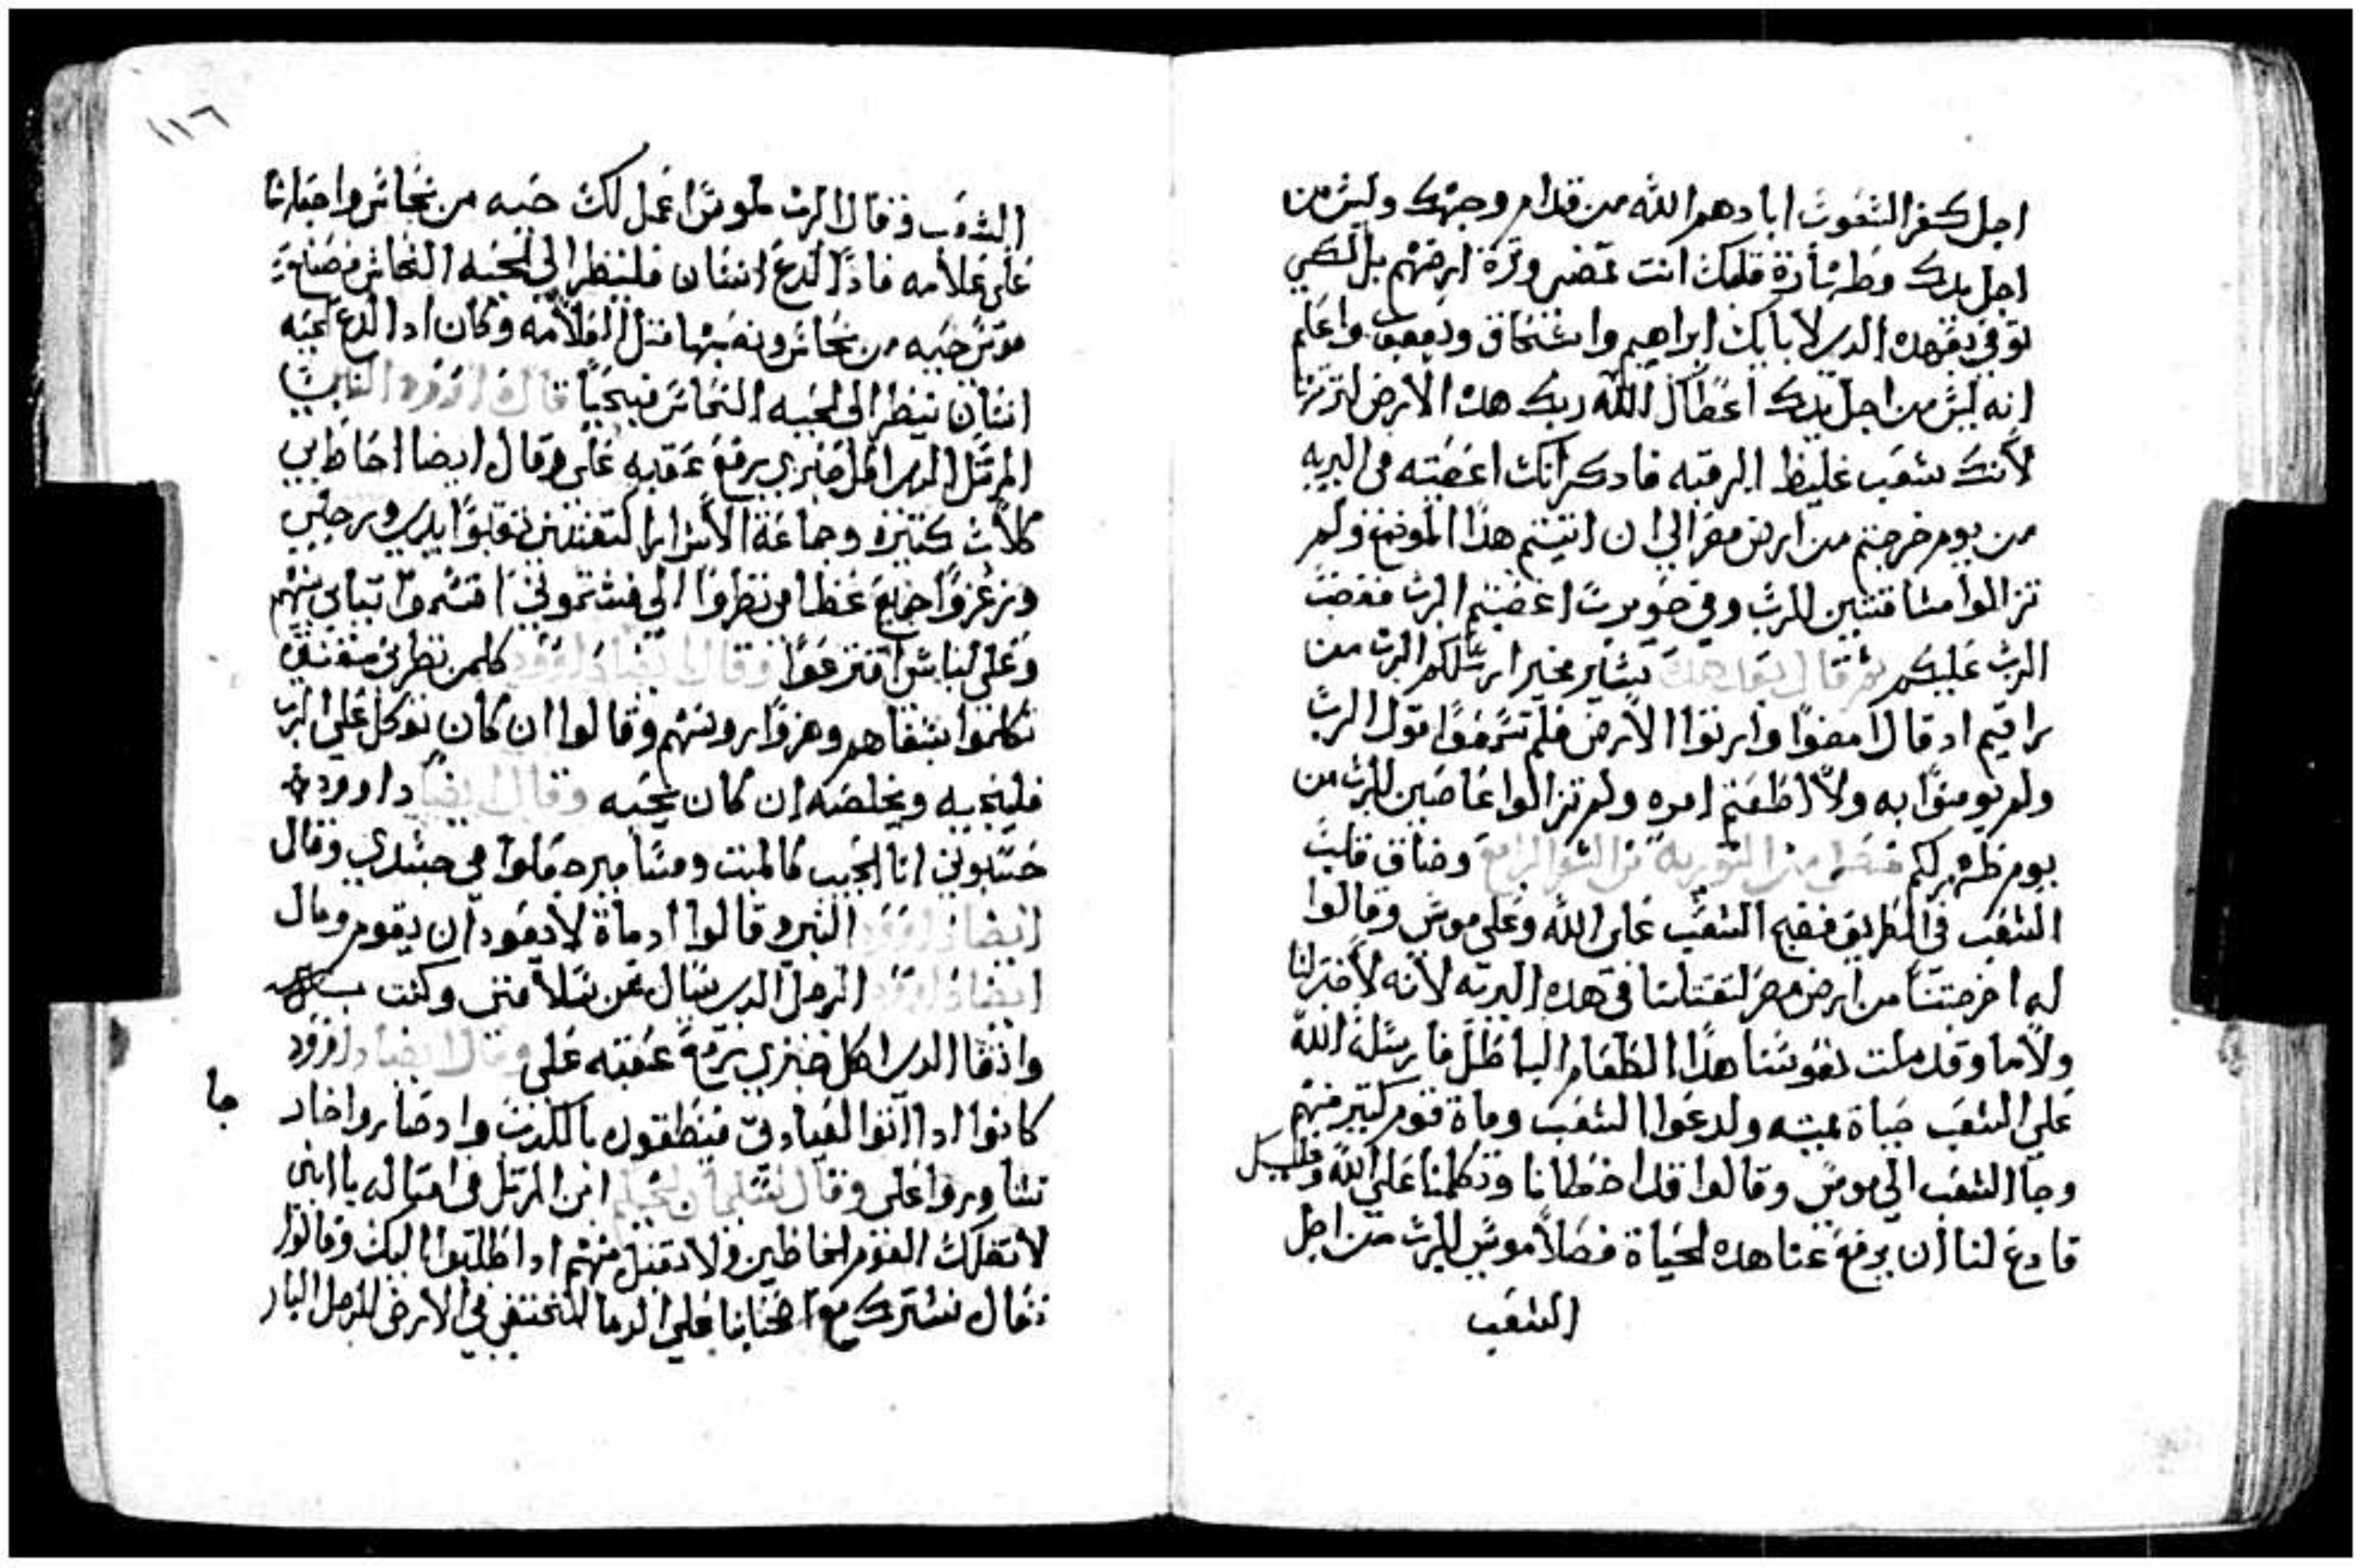 اجل كفر الشعوب ابادهم الله من قدام وجهك وليس من
اجل برك وطهارة قلبك انت تمضي وترة ارضهم بل لكي
توفي بقرهده الدي لابايك ابراهيم واسحاق ويعقوب واعلم
انه ليس من اجل برك اعطاك الله ربك هده الارض لترتها
لانك شعب غليظ الرقبه فادكر انك اغضبته في البريه
من يوم خرجتم من ارض مصر الي ان اتيتم هذا الموضع ولم
تزالوا مشاققين للرب وفي حوريب اغضبتم الرب فغضب
الرب عليكم ثم قال بعد هدا بشاير مخير ارسلكم الرب من
راقيم اد قال امضوا وارتوا الارض فلم تسمعوا قول الرب
ولم تومنوا به ولا اطعتم امره ولم تزالوا عاصين للرب من
يوم ظهر لكم فصل من التوريه من السفر الرابع وضاق قلب
الشعب في الطريق فقبح الشعب علي الله وعلي موسي وقالوا
له اخرجتنا من ارض مصر لتقتلنا في هده البريه لانه لا خبز لنا
ولا ما وقد ملت نفوسنا هذا الطعام الباطل فارسل الله
علي الشعب حياة مميته ولدعوا الشعب وماة قوم كتير منهم
وجا الشعب الي موسي وقالوا قد اخطانا وتكلمنا علي الله وعليك
فادع لنا ان يرفع عنا هده الحياة فصلا موسي للرب من اجل
الشعب
١١٦
الشعب فقال الرب لموسي اعمل لك حيه من نحاس واجعلها
علي علامه فادا لدغ انسان فلينظر الي الحيه النحاس فصنع
موسي حيه من نحاس ونصبها متل العلامه وكان ادا لدغ لحيه
انسان ينظر الي الحيه النحاس فيحيا قال داوود النبي
المرتل الدي اكل خبزي يرفع عقبه علي وقال ايضا احاط بي
كلاب كتيره وجماعة الاشرار اكتنفتني تقبوا يدي ورجلي
وزعزعوا جميع عظامي نظروا الي فشتموني اقتسموا تيابي بينهم
وعلي لباسي اقترعوا وقال ايضا داوود كلمن نظرني مقتني
تكلموا بشفاهم وهزوا روسهم وقالوا ان كان توكل علي الرب
فلينجيه ويخلصه ان كان يحبه وقال ايضا داوود
حسبوني انا الحبيب كالميت ومسامير جعلوا في جسدي وقال
ايضا داوود النبي وقالوا اد ماة لا يعود ان يقوم وقال
ايضا داوود الرجل الدي سال عن سلامتي وكنت
واتقا الدي اكل خبزي يرفع عقبه علي وقال ايضا داوود
كانوا ادا اتوا لعيادتي فينطقون بالكدب وادصاروا خارج
جا
تشاوروا علي وقال سليمان الحكيم ابن المرتل في امتاله يا ابني
لا تضلك القوم الخاطين ولا تقبل منهم ادا طلبوا اليك وقالوا
تعال نشترك مع اصحابنا علي الدما لنختفي في الارض للرجل البار